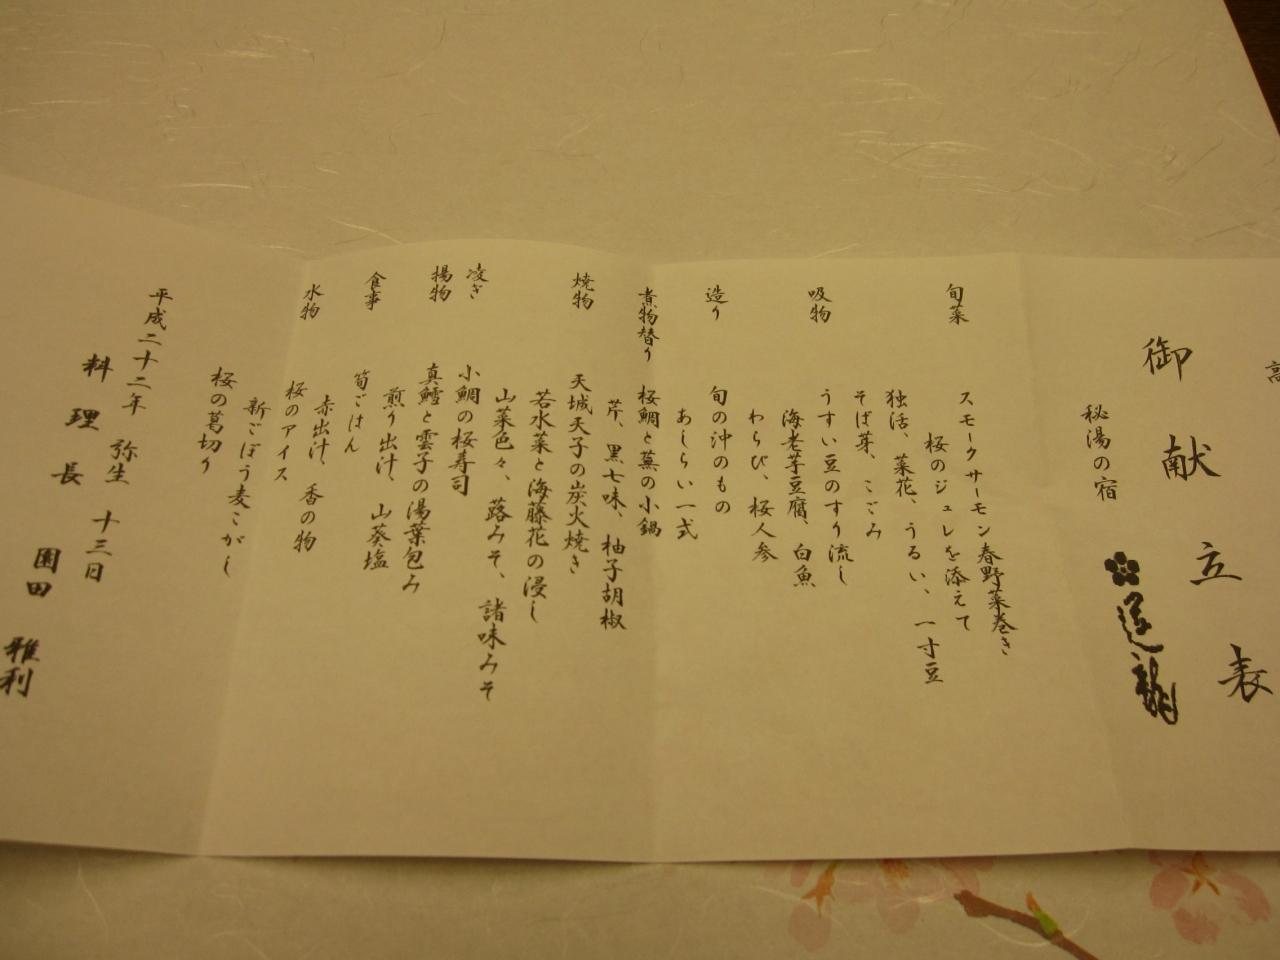 御献立表
秘湯の宿
旬菜
スモークサーモン春野菜巻き
桜のジュレを添えて
独活、菜花、うるい、一寸豆
そば芽、こごみ
吸物
うすい豆のすり流し
海老芋豆腐、白魚
わらび、桜人参
造り
旬の沖のもの
あしらい一式
煮物替り
桜鯛と蕪の小鍋
芹、黒七味、柚子胡椒
焼物
天城天子の炭火焼き
若水菜と海藤花の浸し
山菜色々、蕗みそ、諸味みそ
凌ぎ
小鯛の桜寿司
揚物
真鱈と雲子の湯葉包み
煎り出汁、山葵塩
食事
筍ごはん
赤出汁、香の物
水物
桜のアイス
新ごぼう麦こがし
桜の葛切り
平成二十二年 弥生 十三日
料理長 園田 雅利